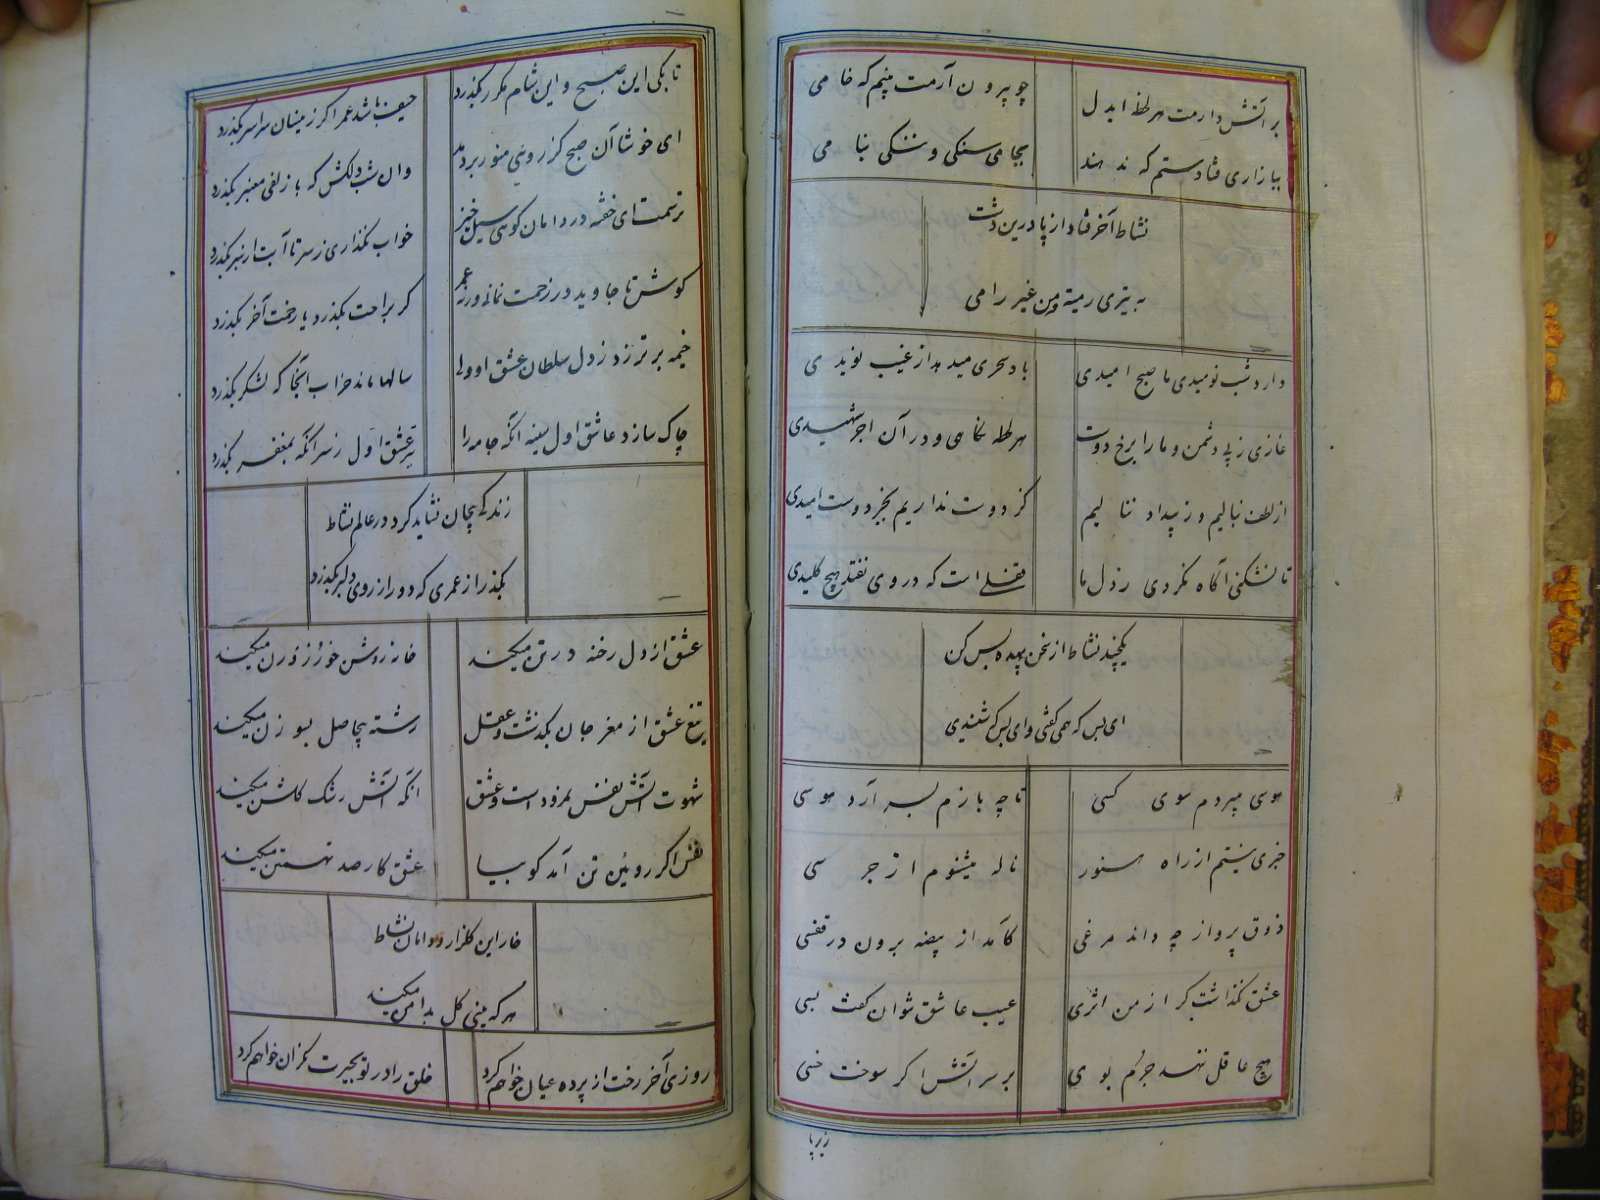 بر آتش دارمت هر لحظه ایدل
چو پیرون آرمت بینم که خامی
ببازاری فتادستم که ندهند
بجامی سنگی و ننگی بنامی
نشاط آخر فتاد از پا درین دشت
به تیری رمیته ومن غیر رامی
دارد شب نومیدی ما صبح امیدی
باد سحری میدهد از غیب نویدی
غازی ز پی دشمن و ما را برخ دوست
هر لحظه نگاهی و در آن اجر شهیدی
از لطف نبالیم و ز بیداد ننالیم
کز دوست نداریم بجز دوست امیدی
تا نشکنی آگاه نگردی ز دل ما
قفلی است که در وی نفتد هیچ کلیدی
یکچند نشاط از سخن بیهده بس کن
ای بس که همی گفتی و ای بس که شنیدی
هوسی میبردم سوی کسی
تا چه بازم بسر آرد هوسی
خبری نیستم از راه هنوز
ناله میشنوم از جرسی
ذوق پرواز چه داند مرغی
کامد از بیضه برون در قفسی
عشق نگذاشت کز از من اثری
عیب عاشق نتوان گفت بسی
هیچ عاقل ننهد جرم بوی
بر سر آتش اگر سوخت خسی
زیبا
تا بکی این صبح و این شام مکرر بگذرد
حیف باشد عمر اگر زینسان سراسر بگذرد
ای خوشا آن صبح کز روئی منور بردمد
وان شب دلکش که با زلفی معنبر بگذرد
ترسمت ای خفته در دامان کوهی سیل خیز
خواب نگذاری ز سر تا آبت از سر بگذرد
کوش تا جاوید در زحمت نمانی ورنه عمر
گر براحت بگذرد یا زحمت آخر بگذرد
خیمه برتر زد ز دل سلطان عشق او ولی
سالها ماند خراب آنجا که لشکر بگذرد
چاک سازد عاشق اول سینه آنگه جامه را
تیر عشق اول ز سر آنگه بمغفر بگذرد
زندگی بیجان نشاید کرد در عالم نشاط
بگذر از عمری که دور از روی دلبر بگذرد
عشق از دل رخنه در تن میکند
خانه روشن خور ز روزن میکند
تیغ عشق از مغز جان بگذشت و عقل
رشته بیحاصل بسوزن میکند
شهوت آتش نفس نمرود است و عشق
آنکه آتش رشک گلشن میکند
نفس اگر روئین تن آمد گو بیا
عشق کار صد تهمتن میکند
خار این گلزار و دامان نشاط
هر که بینی گل بدامن میکند
روزی آخر رخت از پرده عیان خواهم کرد
خلق را در تو بحیرت نگران خواهم کرد